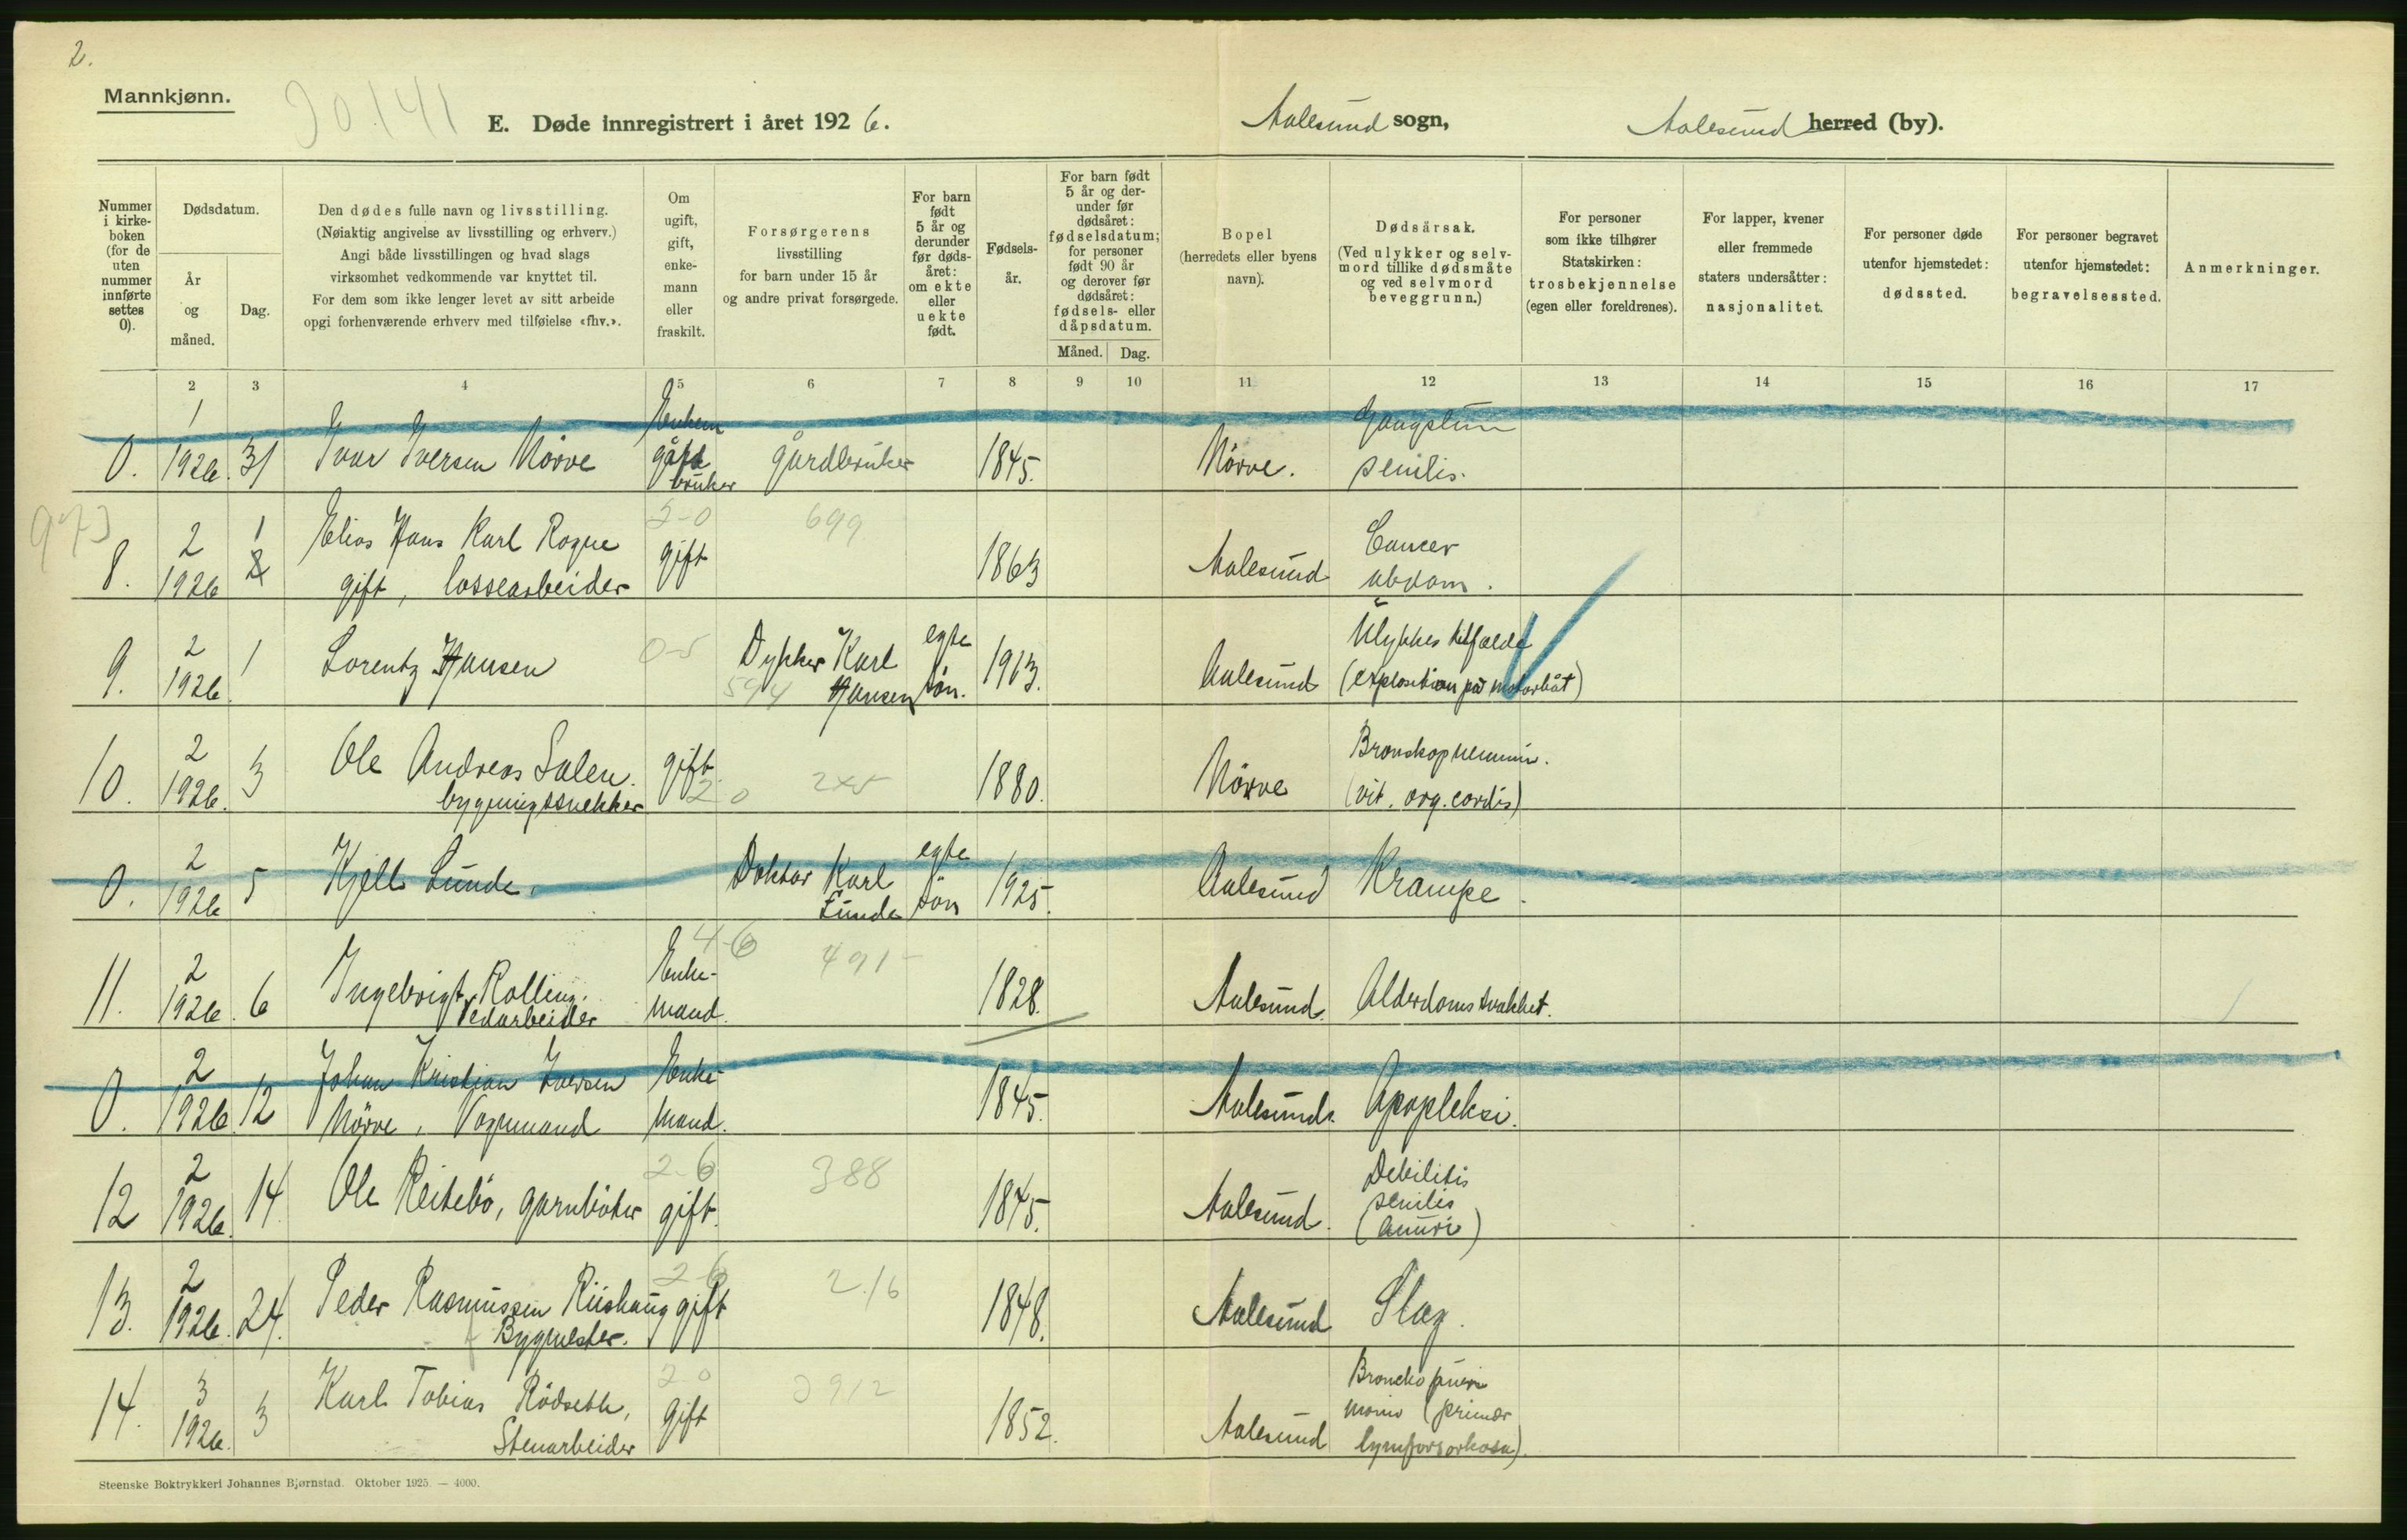 2.
Mannkjønn.
30.141
E. Døde innregistrert i året 1926.
Aalesund sogn,
Aalesund herred (by).
Nummer i kirkeboken (for de uten nummer innførte settes 0).
Dødsdatum.
År og måned.
Dag.
Den dødes fulle navn og livsstilling.
(Nøiaktig angivelse av livsstilling og erhverv.)
Angi både livsstillingen og hvad slags
virksomhet vedkommende var knyttet til.
For dem som ikke lenger levet av sitt arbeide
opgi forhenværende erhverv med tilføielse «fhv.».
Om ugift, gift, enkemann eller fraskilt.
Forsørgerens
livsstilling
for barn under 15 år
og andre privat forsørgede.
For barn født 5 år og derunder før dødsåret: om ekte eller uekte født.
Fødselsår.
For barn født 5 år og derunder før dødsåret: fødselsdatum; for personer født 90 år og derover før dødsåret: fødsels- eller dåpsdatum.
Måned.
Dag.
Bopel
(herredets eller byens navn).
Dødsårsak.
(Ved ulykker og selvmord tillike dødsmåte og ved selvmord beveggrunn.)
For personer
som ikke tilhører
Statskirken:
trosbekjennelse
(egen eller foreldrenes).
For lapper, kvener
eller fremmede
staters undersåtter:
nasjonalitet.
For personer døde
utenfor hjemstedet:
dødssted.
For personer begravet
utenfor hjemstedet:
begravelsessted.
Anmerkninger.
2 3 4 5 6 7 8 9 10 11 12 13 14 15 16 17
0. 1 1926. 31 Ivar Iversen Nörve Enkem gårdbruker gårdbruker 1845. Nörve. senilis.
973
8. 2 1926 1 Elias Hans Karl Rogne 2-0 699
gift, lossearbeider gift 1863 Aalesund Cancer abdom.
9. 2 1926. 1 Lorentz Hansen 0-5 Dykker Karl Hansen 594 egte sön. 1913. Aalesund Ulykkes tilfælde
(explosition på motorbåt)
10. 2 1926. 3 Ole Andreas Salen. gift. 2 0 245 1880. Nörve Bronchopneumin.
bygningssnekker (vit. org. cordis)
0. 2 1926 5 Kjell Lunde. Doktor Karl Lunde egte sön 1925. Aalesund Krampe.
11. 2 1926. 6 Ingebrigt Rolling. Enkemand. 4-6 491 1828. Aalesund. Alderdomssvakhet.
Vedarbeider
0. 2 1926. 12 Johan Kristian Iversen Enkemand. 1845. Aalesund. Apopleksi.
Nörve, Vognmand
12 2 1926. 14. Ole Reitebö, garnböter 2-6 gift. 388 1845. Aalesund. Debilitis
senilis
(anuri)
13. 2 1926. 24. Peder Rasmussen Riishaug gift 2-6 216 1848. Aalesund Slag.
Bygmester.
14. 3 1926. 3 Karl Tobias Rödseth, 2-0 gift 3912 1852. Aalesund Bronchopneu
Stenarbeider monie (primær
lymfosarkosa).
Steenske Boktrykkeri Johannes Bjørnstad. Oktober 1925. — 4000.